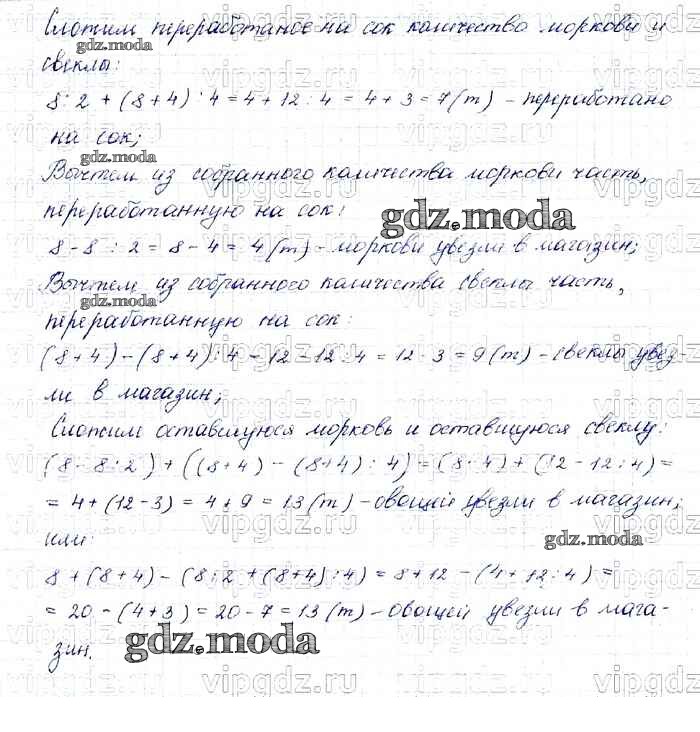 Сложим переработаное на сок количество моркови и
свеклы:
8 : 2 + (8+4) : 4 = 4 + 12 : 4 = 4 + 3 = 7 (т) – переработано
на сок;
Вычтем из собранного количества моркови часть,
переработанную на сок:
8 - 8 : 2 = 8 - 4 = 4 (т) - моркови увезли в магазин;
Вычтем из собранного количества свеклы часть,
переработанную на сок:
(8+4) - (8+4) : 4 = 12 - 12 : 4 = 12 - 3 = 9 (т) - свеклы увез-
ли в магазин;
Сложим оставшуюся морковь и оставшуюся свеклу:
(8 - 8 : 2) + ((8+4) - (8+4) : 4) = (8 - 4) + (12 - 12 : 4) =
= 4 + (12 - 3) = 4 + 9 = 13 (т) - овощей увезли в магазин;
или:
8 + (8+4) - (8 : 2 + (8+4) : 4) = 8 + 12 - (4 + 12 : 4) =
= 20 - (4 + 3) = 20 - 7 = 13 (т) - овощей увезли в мага-
зин.
gdz.moda
gdz.moda
gdz.moda
gdz.moda
gdz.moda
gdz.moda
vipgdz.ru